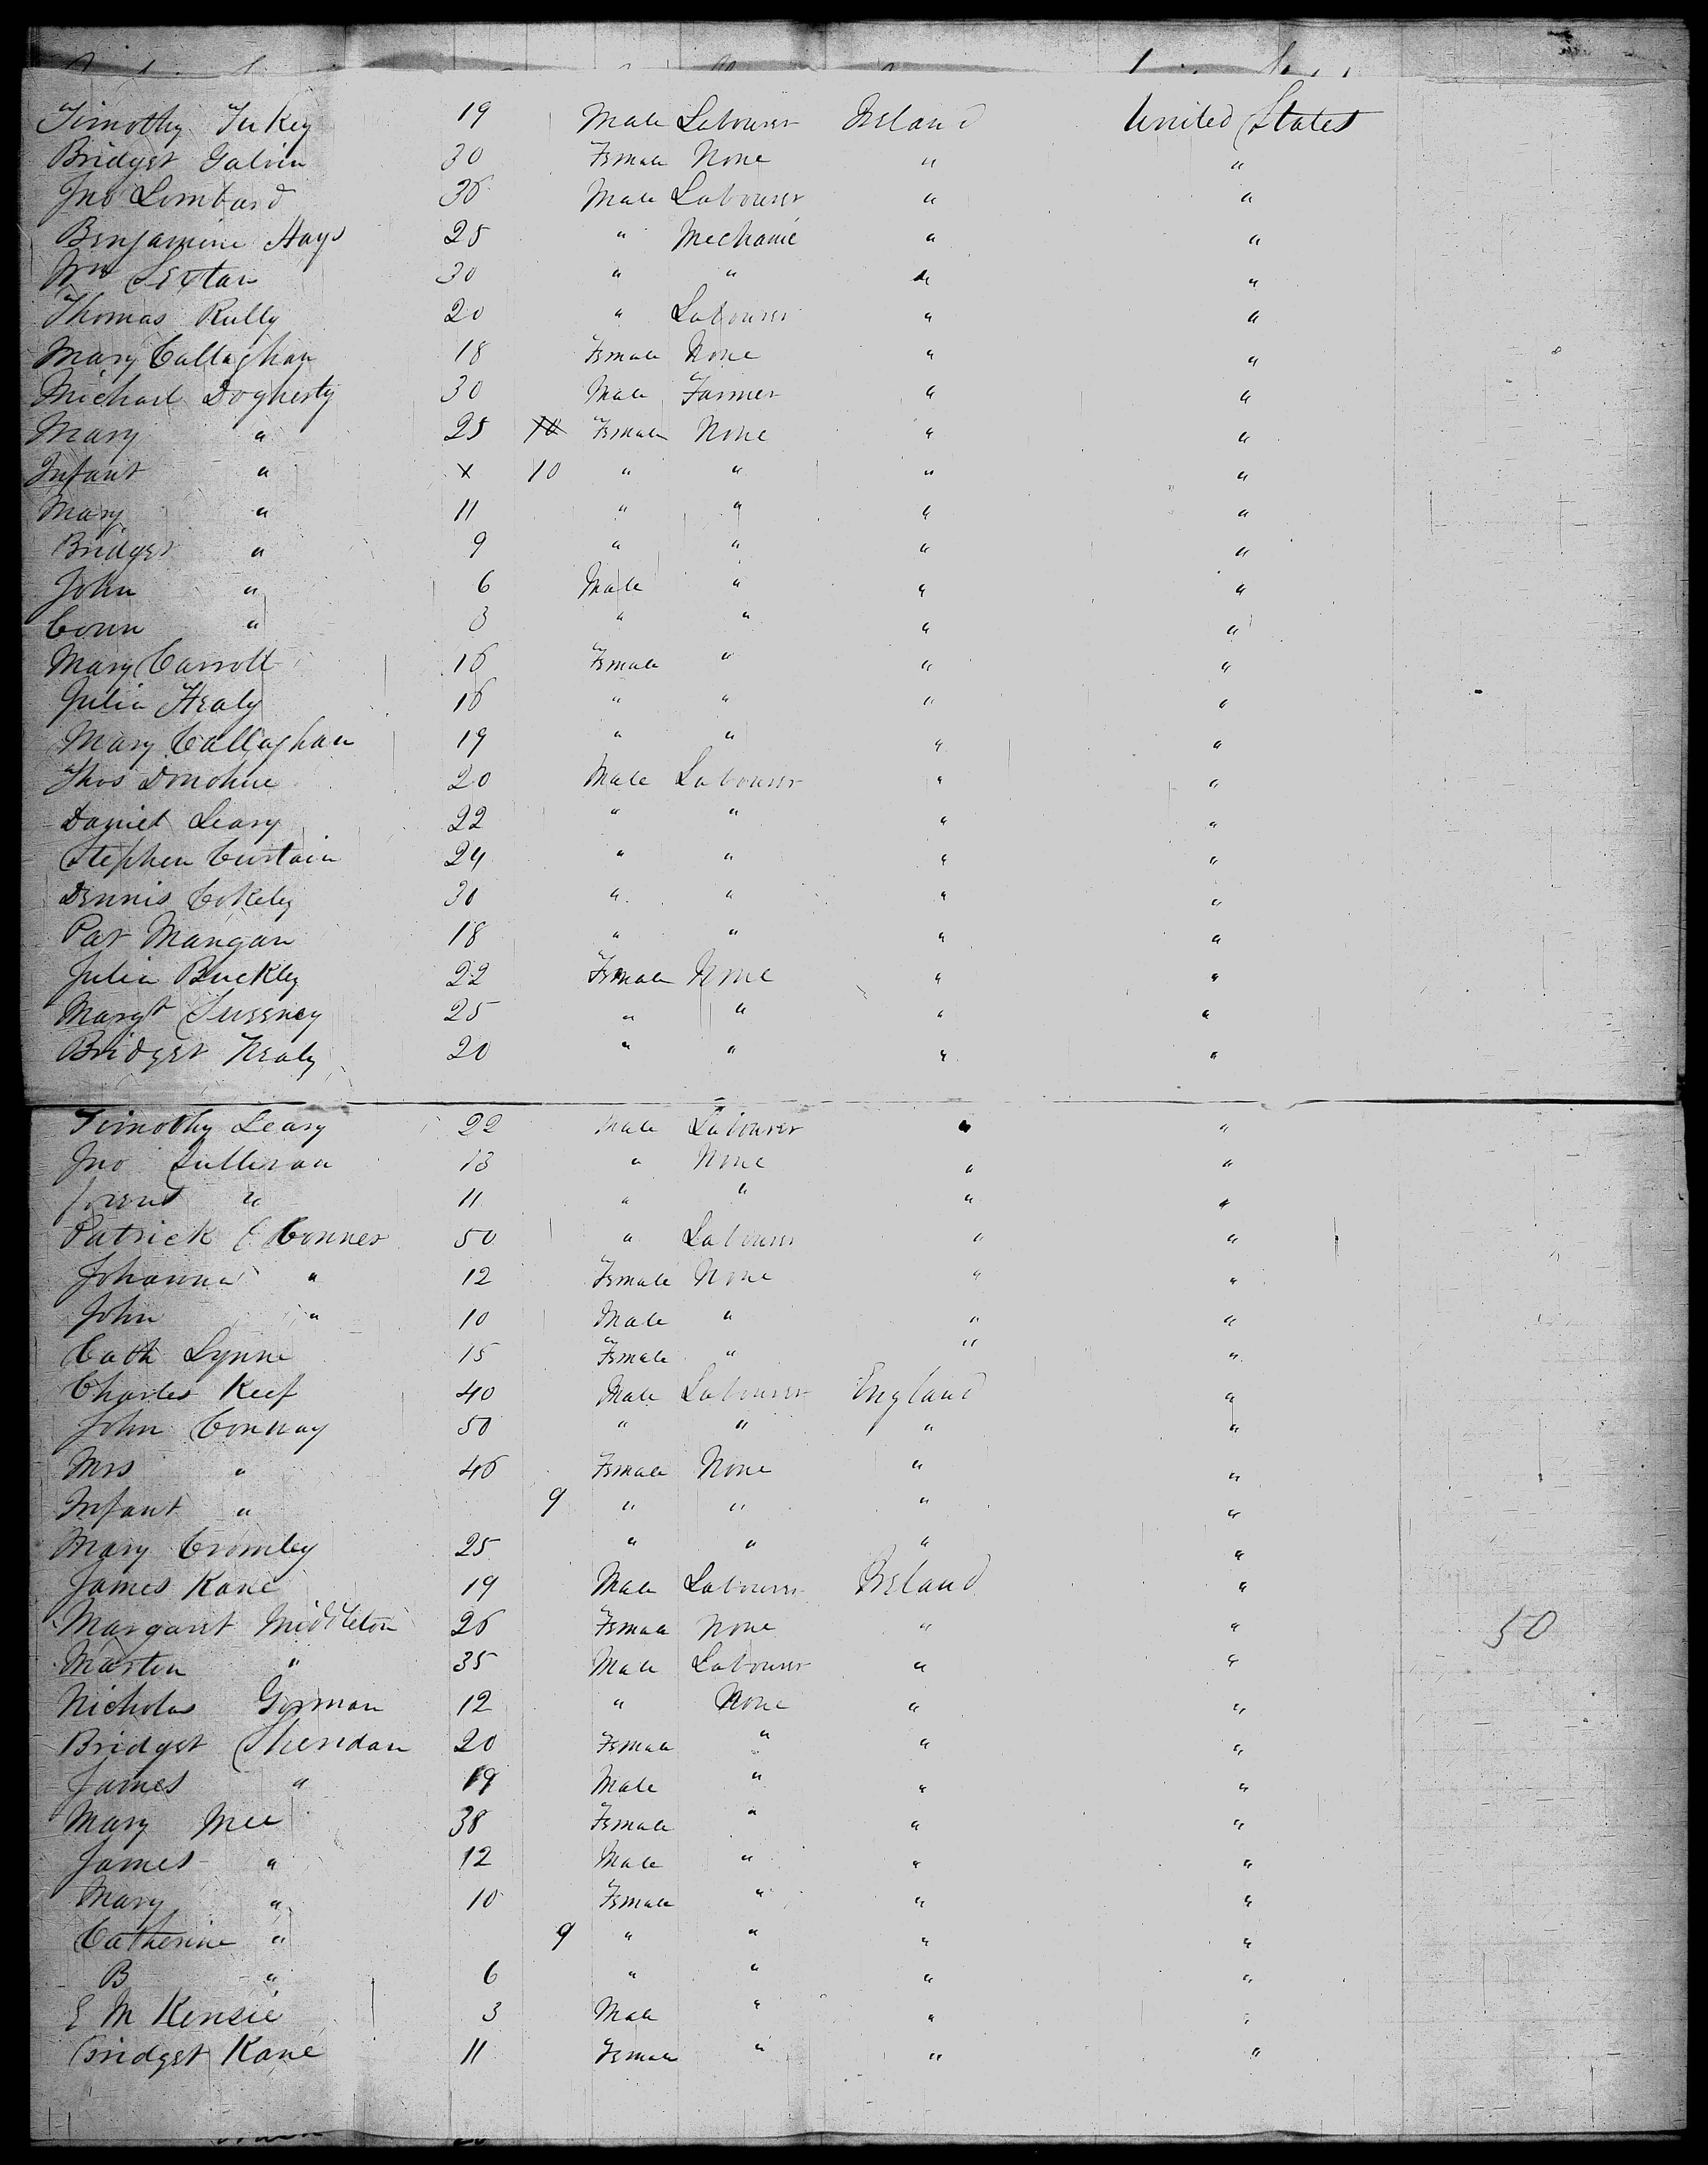 Timothy Tukey 19 Male Labourer Ireland United States
Bridget Galvin 30 Female None " "
Jno Lombard 36 Male Labourer " "
Benjamine Hays 25 " Mechanic " "
Wm Sextan 30 " " " "
Thomas Rully 20 " Labourer " "
Mary Callaghan 18 Female None " "
Michael Dogherty 30 Male Farmer " "
Mary " 25 10 Female None " "
Infant " x 10 " " " "
Mary " 11 " " " "
Bridget " 9 " " " "
John " 6 Male " " "
Conn " 3 " " " "
Mary Carroll 16 Female " " "
Julia Healy 16 " " " "
Mary Callaghan 19 " " " "
Thos Donohue 20 Male Labourer " "
Daniel Leary 22 " " " "
Stephen Curtain 24 " " " "
Dennis Cokely 30 " " " "
Pat Mangan 18 " " " "
Julia Buckley 22 Female None " "
Margt 25 " " " "
Bridget Healy 20 " " " "
Timothy Leary 22 Male Labourer " "
Jno Sullivan 13 " None " "
" 11 " " " "
Patrick Conner 50 " Labourer " "
Johanna " 12 Female None " "
John " 10 Male " " "
Cath Lynne 15 Female " " "
Charles Keef 40 Male Labourer England "
John Conway 50 " " " "
Mrs " 46 Female None " "
Infant " 9 " " " "
Mary Cromley 25 " " " "
James Kane 19 Male Labourer Ireland "
Margaret Middleton 26 Female None " " 50
Martin " 35 Male Labourer " "
Nicholas Gorman 12 " None " "
Bridget Sheridan 20 Female " " "
James " 19 Male " " "
Mary Mee 38 Female " " "
James " 12 Male " " "
Mary " 10 Female " " "
Catherine " 9 " " " "
B " 6 " " " "
E M Kensie 3 Male " " "
Bridget Kane 11 Female " " "